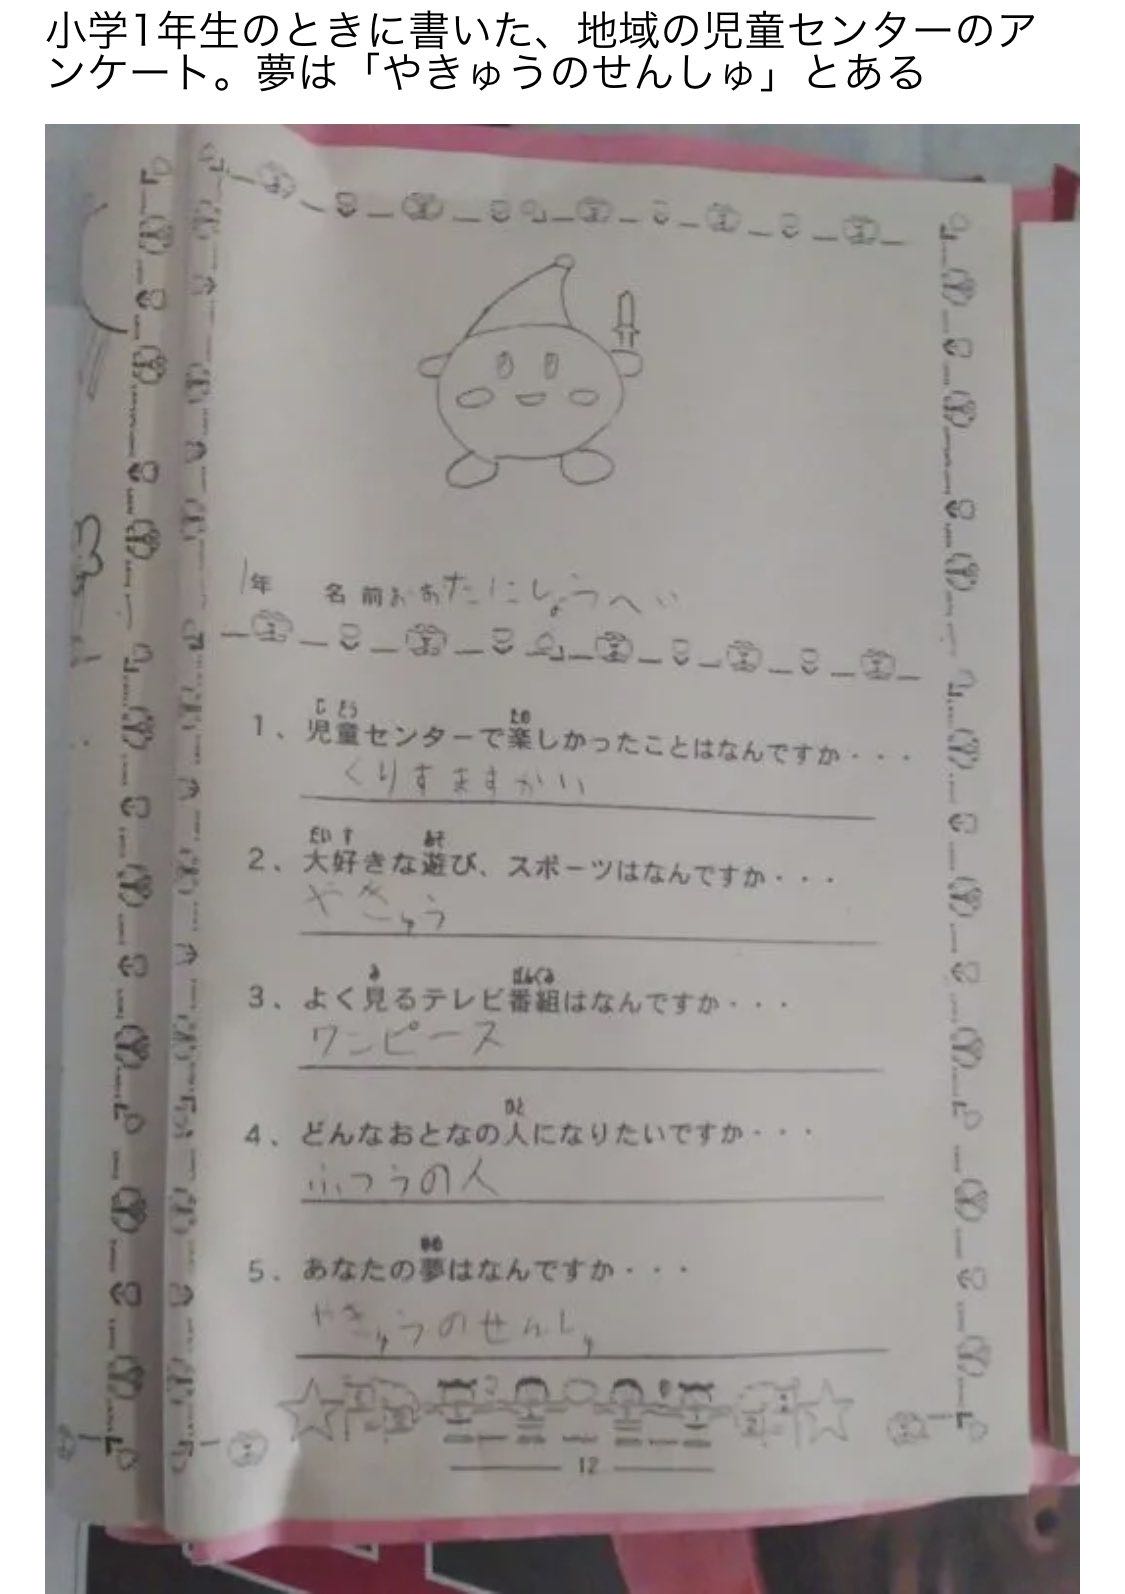 小学1年生のときに書いた、地域の児童センターのア
ンケート。夢は「やきゅうのせんしゅ」とある
1年 名前おおたにしょうへい
じどう たの
1、児童センターで楽しかったことはなんですか・・・
くりすますかい
だいす あそ
2、大好きな遊び、スポーツはなんですか・・・
やきゅう
み ばんぐみ
3、よく見るテレビ番組はなんですか・・・
ワンピース
ひと
4、どんなおとなの人になりたいですか・・・
ふつうの人
ゆめ
5、あなたの夢はなんですか・・・
やきゅうのせんしゅ
12